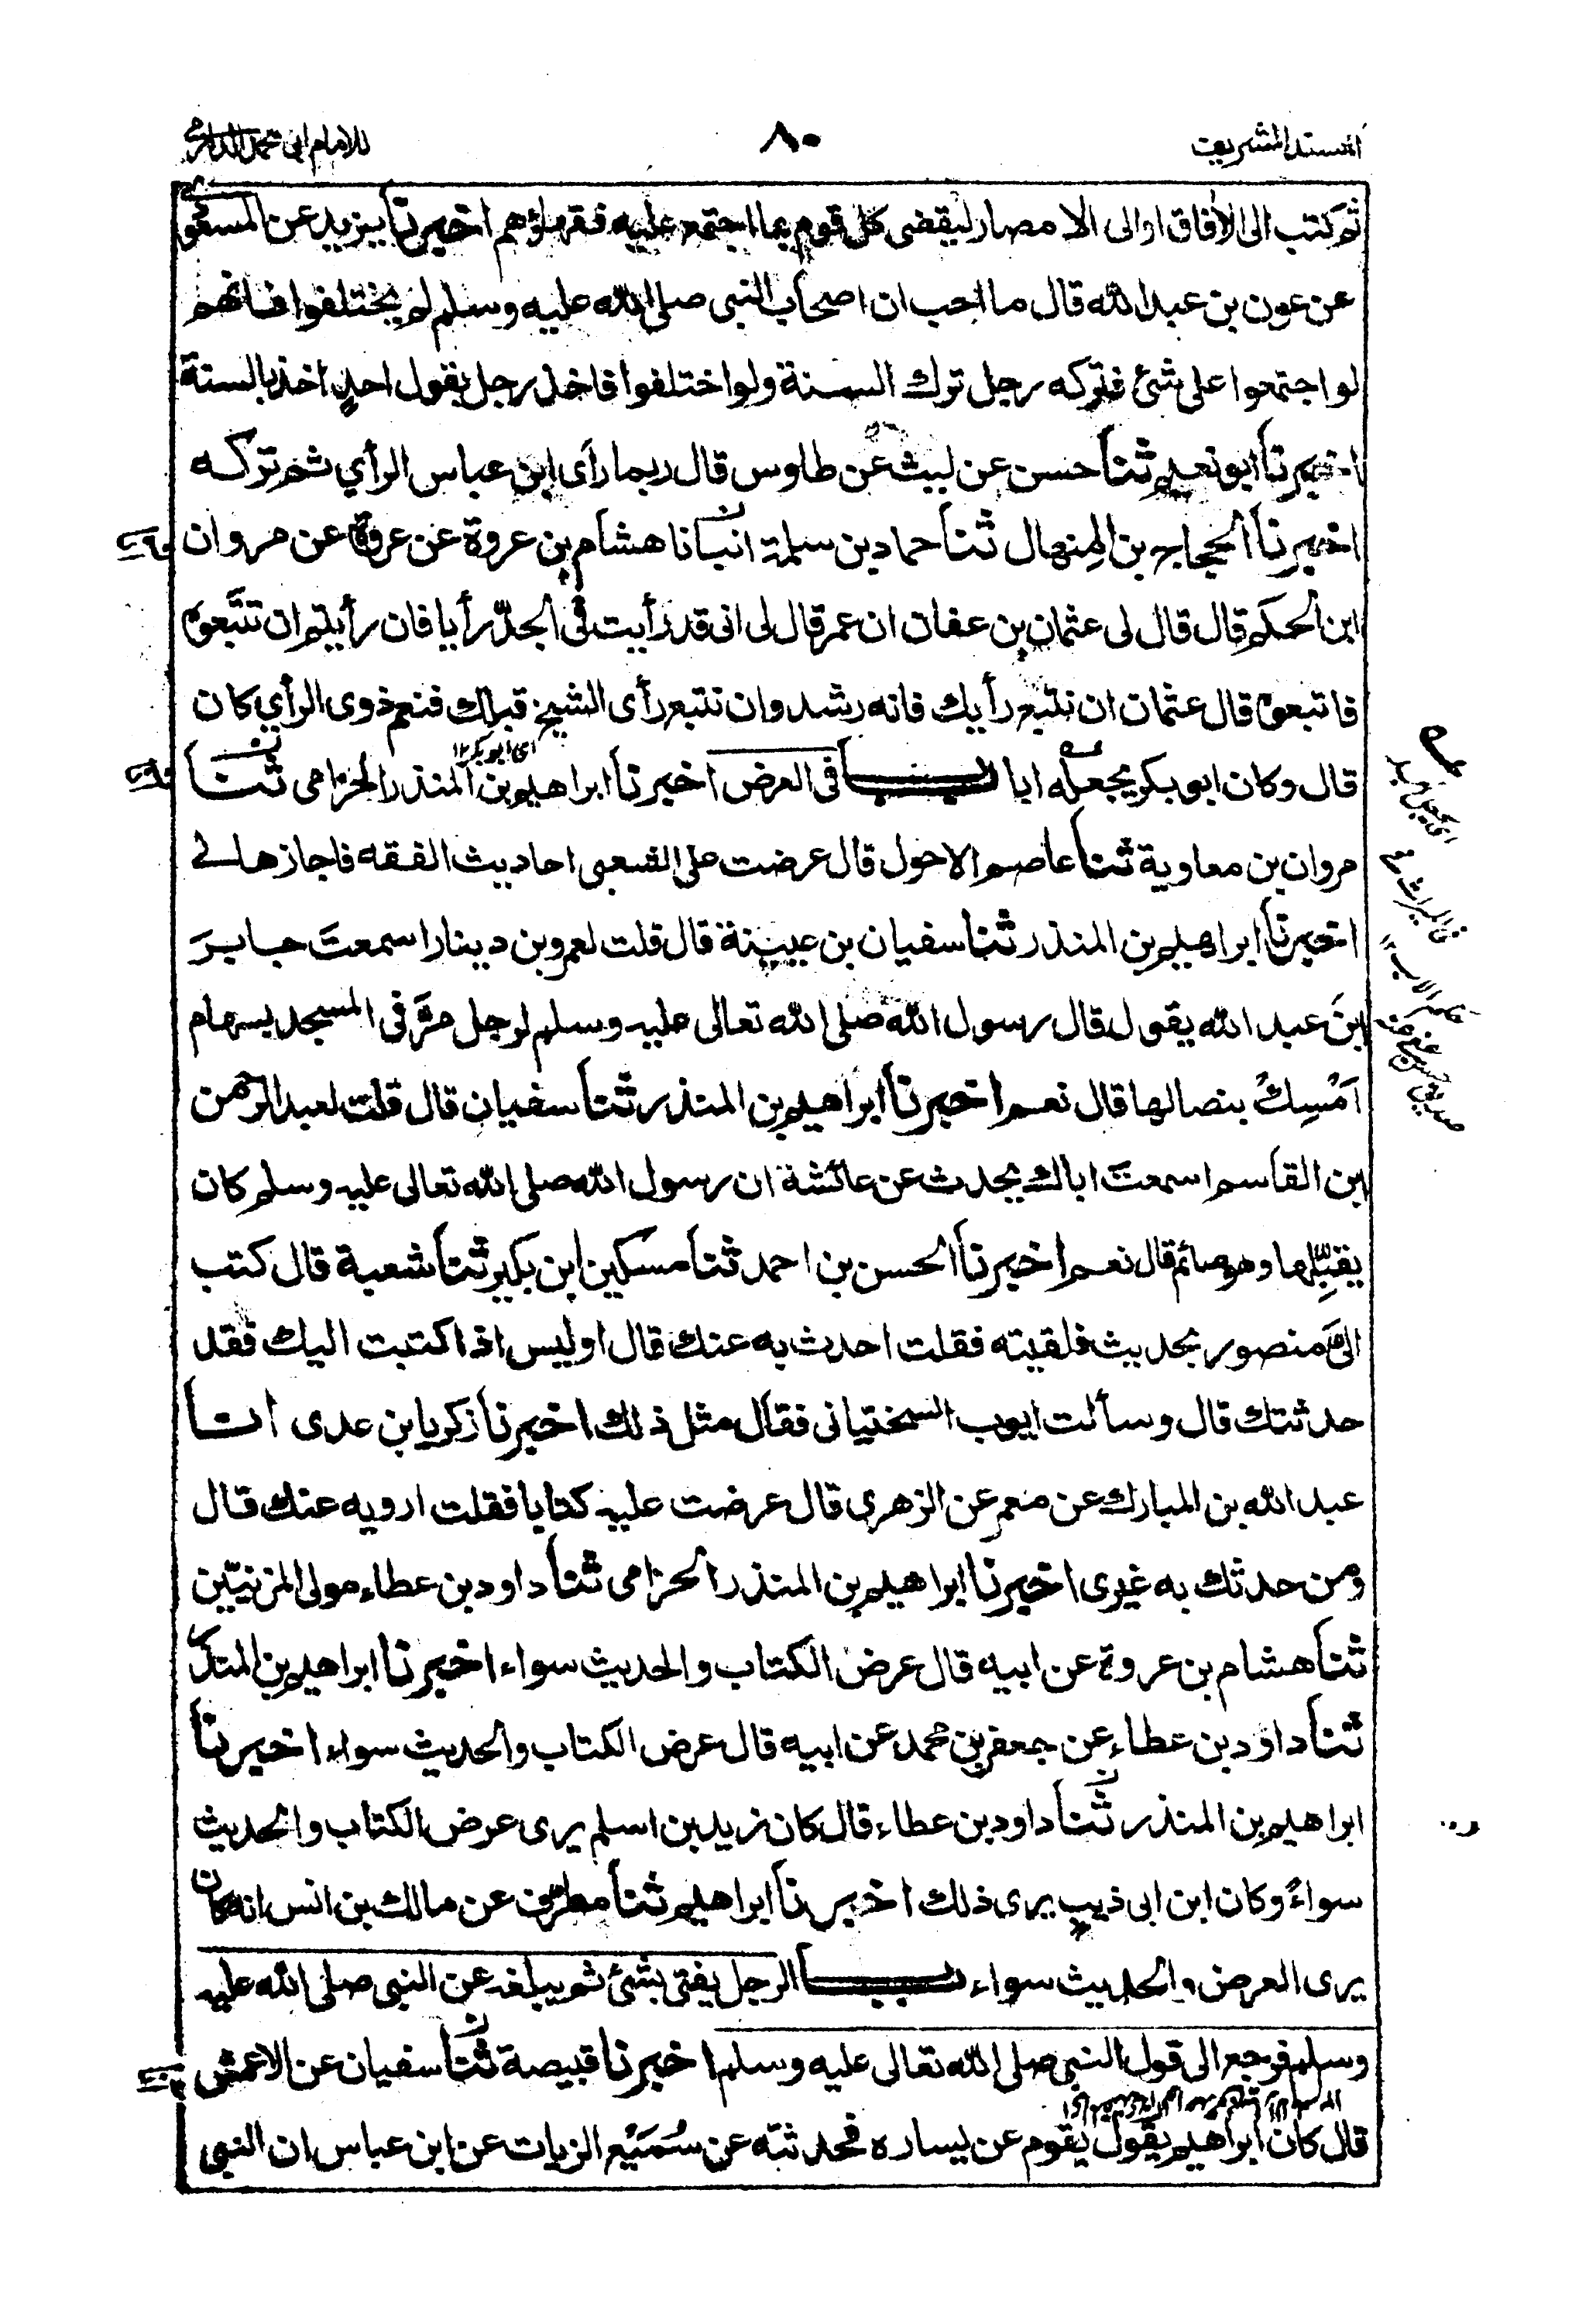 المسند الشريف
٨٠
للامام ابى محمد الدارمى
ثم كتب الى الأفاق او الى الامصار ليقضى كل قوم بما اجتمع عليه فقهاؤهم اخبرنا يزيد عن المسعودى
عن عون بن عبد الله قال ما احب ان اصحاب النبى صلى الله عليه وسلم لم يختلفوا فانهم
لو اجتمعوا على شئ فتركه رجل ترك السنة ولو اختلفوا فاخذ رجل بقول احدٍ اخذ بالسنة
اخبرنا ابو نعيم ثنا حسن عن ليث عن طاوس قال ربما رأى ابن عباس الرأي ثم تركه
اخبرنا الحجاج بن المنهال ثنا حماد بن سلمة انبانا هشام بن عروة عن عروة عن مروان
ابن الحكم قال قال لى عثمان بن عفان ان عمر قال لى انى قد رأيت فى الجدّ رأيا فان رأيتم ان تتّبعوه
فاتبعوه قال عثمان ان نتبع رأيك فانه رشد وان نتبع رأى الشيخ قبلك فنعم ذوى الرأي كان
اى ابو بكر ١٢
قال وكان ابو بكر يجعله ابا باب فى العرض اخبرنا ابراهيم بن المنذر الحزامى ثنا
مروان بن معاوية ثنا عاصم الاحول قال عرضت على الشعبى احاديث الفقه فاجازها لى
اخبرنا ابراهيم بن المنذر ثنا سفيان بن عيينة قال قلت لعمرو بن دينار اسمعتَ جابرَ
ابنَ عبد الله يقول قال رسول الله صلى الله تعالى عليه وسلم لرجل مرَّ فى المسجد بسهام
اَمْسِكْ بنصالها قال نعم اخبرنا ابراهيم بن المنذر ثنا سفيان قال قلت لعبد الرحمن
ابن القاسم اسمعتَ اباك يحدث عن عائشة ان رسول الله صلى الله تعالى عليه وسلم كان
يقبّلها وهو صائم قال نعم اخبرنا الحسن بن احمد ثنا مسكين ابن بكير ثنا شعبة قال كتب
الىَّ منصور بحديث فلقيته فقلت احدث به عنك قال اوليس اذا كتبت اليك فقد
حدثتك قال وسألت ايوب السختيانى فقال مثل ذلك اخبرنا زكريا بن عدى انا
عبد الله بن المبارك عن معمر عن الزهرى قال عرضت عليه كتابا فقلت ارويه عنك قال
ومن حدثك به غيرى اخبرنا ابراهيم بن المنذر الحزامى ثنا داود بن عطاء مولى المزنيّين
ثنا هشام بن عروة عن ابيه قال عرض الكتاب والحديث سواء اخبرنا ابراهيم بن المنذر
ثنا داود بن عطاء عن جعفر بن محمد عن ابيه قال عرض الكتاب والحديث سواء اخبرنا
ابراهيم بن المنذر ثنا داود بن عطاء قال كان زيد بن اسلم يرى عرض الكتاب والحديث
سواءً وكان ابن ابى ذيب يرى ذلك اخبرنا ابراهيم ثنا مطرف عن مالك بن انس انه كان
يرى العرض والحديث سواء باب الرجل يفتى بشئ ثم يبلغه عن النبى صلى الله عليه
وسلم فرجع الى قول النبى صلى الله تعالى عليه وسلم اخبرنا قبيصة ثنا سفيان عن الاعمش
قال كان ابراهيم يقول يقوم عن يساره فحدثته عن سُمَيْع الزيات عن ابن عباس ان النبى